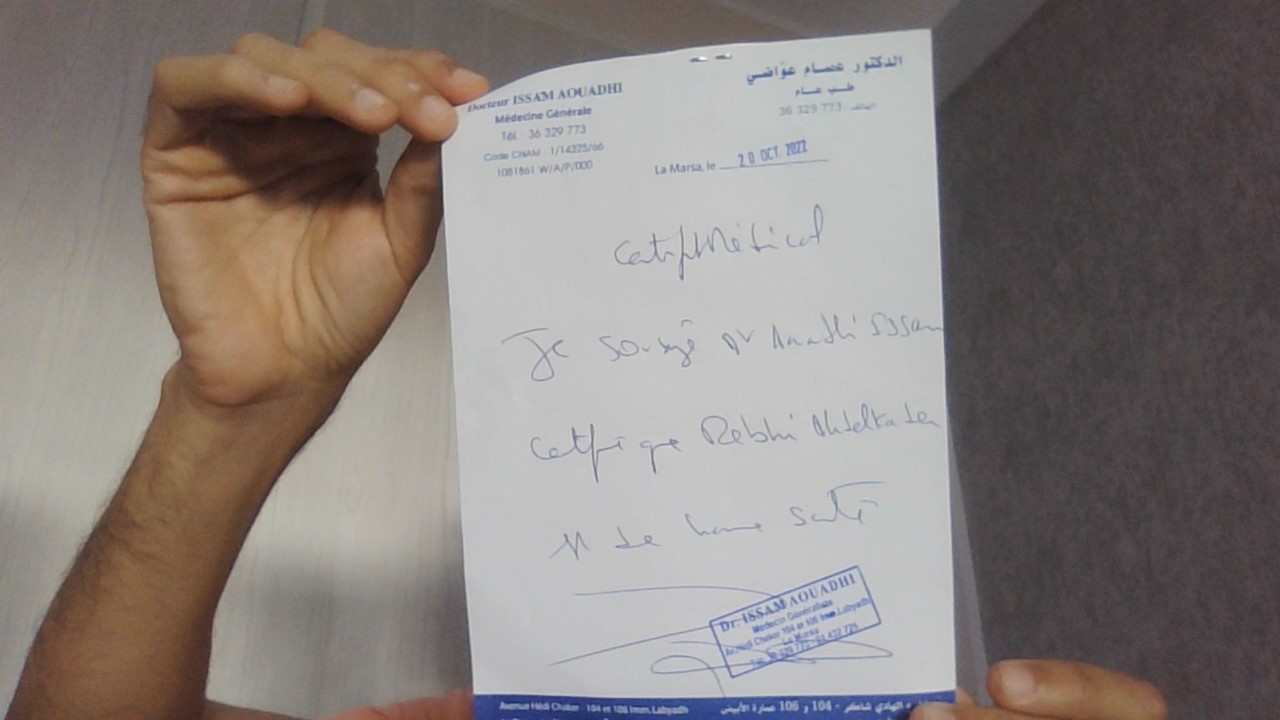 Docteur ISSAM AOUADHI
Médecine Générale
Tél. 36 329 773
Code CNAM 1/14325/66
1081861 W/A/P/000
الدكتور عصام عوّاضي
طب عام
الهاتف 36 329 773
La Marsa, le 20 OCT. 2022
Certif Médical
Je sousigé Dr Aouadhi Issam
certifie que Rebhi Abdelkader
de bonne santé
Dr. ISSAM AOUADHI
Médecin Généraliste
Av. Hédi Chaker 104 et 106 Imm. Labyadh
La Marsa
Avenue Hédi Chaker - 104 et 106 Imm. Labyadh
الهادي شاكر - 104 و 106 عمارة الأبيض